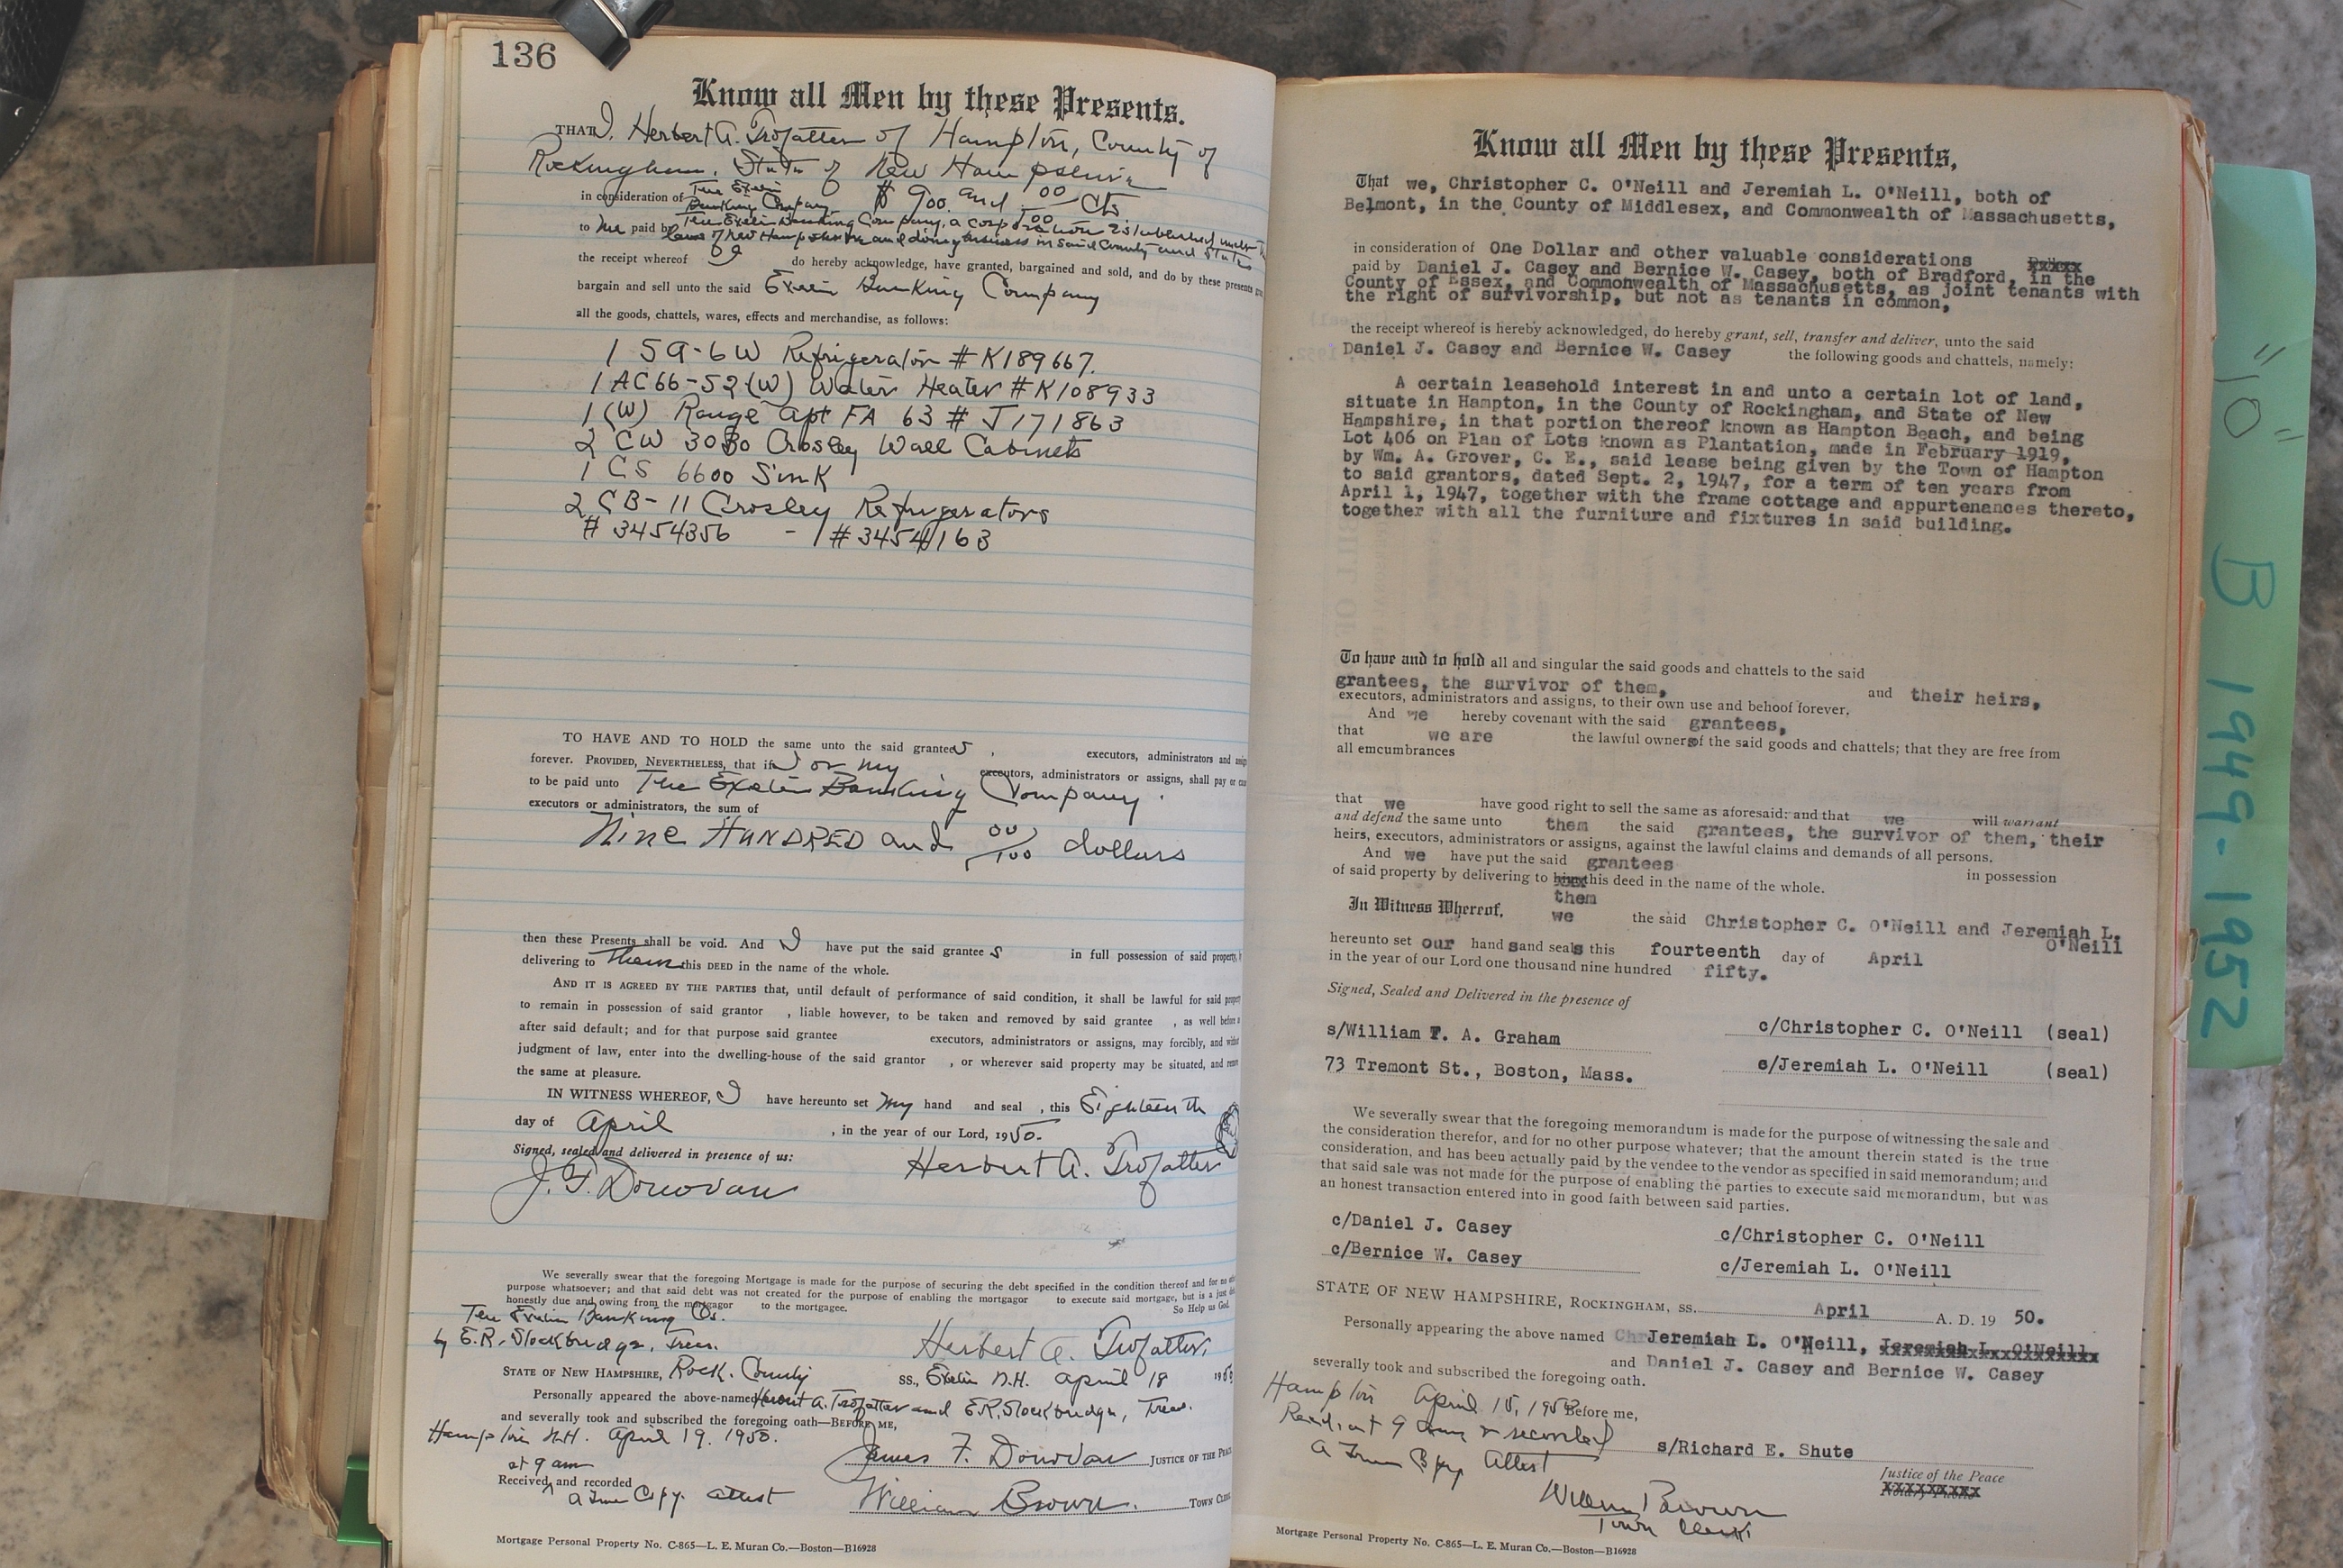 136
Know all Men by these Presents.
THAT I, Herbert A. Trofatter of Hampton, County of
Rockingham, State of New Hampshire
in consideration of The Exeter Banking Company $900 and 00/100 Cts.
to me paid by The Exeter Banking Company, a corporation established under the
laws of New Hampshire and doing business in said County and State
the receipt whereof I do hereby acknowledge, have granted, bargained and sold, and do by these presents
bargain and sell unto the said Exeter Banking Company
all the goods, chattels, wares, effects and merchandise, as follows:
1 S9-6W Refrigerator # K189667.
1 AC66-52 (W) Water Heater # K108933
1 (W) Range Apt FA 63 # J171863
2 CW 3030 Crosley Wall Cabinets
1 CS 6600 Sink
2 CB-11 Crosley Refrigerators
# 3454356 - 1 # 3454163
TO HAVE AND TO HOLD the same unto the said grantees, executors, administrators and
forever. PROVIDED, NEVERTHELESS, that if I or my executors, administrators or assigns, shall pay or
to be paid unto The Exeter Banking Company.
executors or administrators, the sum of
Nine HUNDRED and 00/100 dollars
then these Presents shall be void. And I have put the said grantee s in full possession of said property,
delivering to them this DEED in the name of the whole.
AND IT IS AGREED BY THE PARTIES that, until default of performance of said condition, it shall be lawful for said
to remain in possession of said grantor , liable however, to be taken and removed by said grantee , as well before
after said default; and for that purpose said grantee executors, administrators or assigns, may forcibly, and
judgment of law, enter into the dwelling-house of the said grantor , or wherever said property may be situated, and
the same at pleasure.
IN WITNESS WHEREOF, I have hereunto set my hand and seal , this Eighteenth
day of April , in the year of our Lord, 1950.
Signed, sealed and delivered in presence of us:
J. F. Donovan Herbert A. Trofatter
We severally swear that the foregoing Mortgage is made for the purpose of securing the debt specified in the condition thereof and for no
purpose whatsoever; and that said debt was not created for the purpose of enabling the mortgagor to execute said mortgage, but is a just
honestly due and owing from the mortgagor to the mortgagee. So Help us God.
The Exeter Banking Co.
by E.R. Stockbridge, Treas. Herbert A. Trofatter,
STATE OF NEW HAMPSHIRE, Rock. County SS., Exeter N.H. April 18 1950
Personally appeared the above-named Herbert A. Trofatter and E.R. Stockbridge, Treas.
and severally took and subscribed the foregoing oath—BEFORE ME,
Hampton N.H. April 19. 1950.
at 9 am James F. Donovan JUSTICE OF THE PEACE
Received and recorded
a True Copy. attest William Brown. TOWN CLERK
Mortgage Personal Property No. C-865—L. E. Muran Co.—Boston—B16928
Know all Men by these Presents,
That we, Christopher C. O'Neill and Jeremiah L. O'Neill, both of
Belmont, in the County of Middlesex, and Commonwealth of Massachusetts,
in consideration of One Dollar and other valuable considerations
paid by Daniel J. Casey and Bernice W. Casey, both of Bradford, in the
County of Essex, and Commonwealth of Massachusetts, as joint tenants with
the right of survivorship, but not as tenants in common,
the receipt whereof is hereby acknowledged, do hereby grant, sell, transfer and deliver, unto the said
Daniel J. Casey and Bernice W. Casey the following goods and chattels, namely:
A certain leasehold interest in and unto a certain lot of land,
situate in Hampton, in the County of Rockingham, and State of New
Hampshire, in that portion thereof known as Hampton Beach, and being
Lot 406 on Plan of Lots known as Plantation, made in February 1919,
by Wm. A. Grover, C. E., said lease being given by the Town of Hampton
to said grantors, dated Sept. 2, 1947, for a term of ten years from
April 1, 1947, together with the frame cottage and appurtenances thereto,
together with all the furniture and fixtures in said building.
To have and to hold all and singular the said goods and chattels to the said
grantees, the survivor of them, and their heirs,
executors, administrators and assigns, to their own use and behoof forever.
And we hereby covenant with the said grantees,
that we are the lawful owners of the said goods and chattels; that they are free from
all emcumbrances
that we have good right to sell the same as aforesaid: and that we will warrant
and defend the same unto them the said grantees, the survivor of them, their
heirs, executors, administrators or assigns, against the lawful claims and demands of all persons.
And we have put the said grantees in possession
of said property by delivering to this deed in the name of the whole.
them
In Witness Whereof, we the said Christopher C. O'Neill and Jeremiah L.
O'Neill
hereunto set our hand s and seals this fourteenth day of April
in the year of our Lord one thousand nine hundred fifty.
Signed, Sealed and Delivered in the presence of
s/William T. A. Graham c/Christopher C. O'Neill (seal)
73 Tremont St., Boston, Mass. c/Jeremiah L. O'Neill (seal)
We severally swear that the foregoing memorandum is made for the purpose of witnessing the sale and
the consideration therefor, and for no other purpose whatever; that the amount therein stated is the true
consideration, and has been actually paid by the vendee to the vendor as specified in said memorandum; and
that said sale was not made for the purpose of enabling the parties to execute said memorandum, but was
an honest transaction entered into in good faith between said parties.
c/Daniel J. Casey c/Christopher C. O'Neill
c/Bernice W. Casey c/Jeremiah L. O'Neill
STATE OF NEW HAMPSHIRE, ROCKINGHAM, SS. April A. D. 19 50.
Personally appearing the above named Jeremiah L. O'Neill, Jeremiah L. O'Neill
and Daniel J. Casey and Bernice W. Casey
severally took and subscribed the foregoing oath.
Hampton April 15, 1950 Before me,
Recd, at 9 am & recorded s/Richard E. Shute
A True Copy Attest Justice of the Peace
Notary Public
William Brown
Town Clerk
Mortgage Personal Property No. C-865—L. E. Muran Co.—Boston—B16928
"10" B 1949-1952